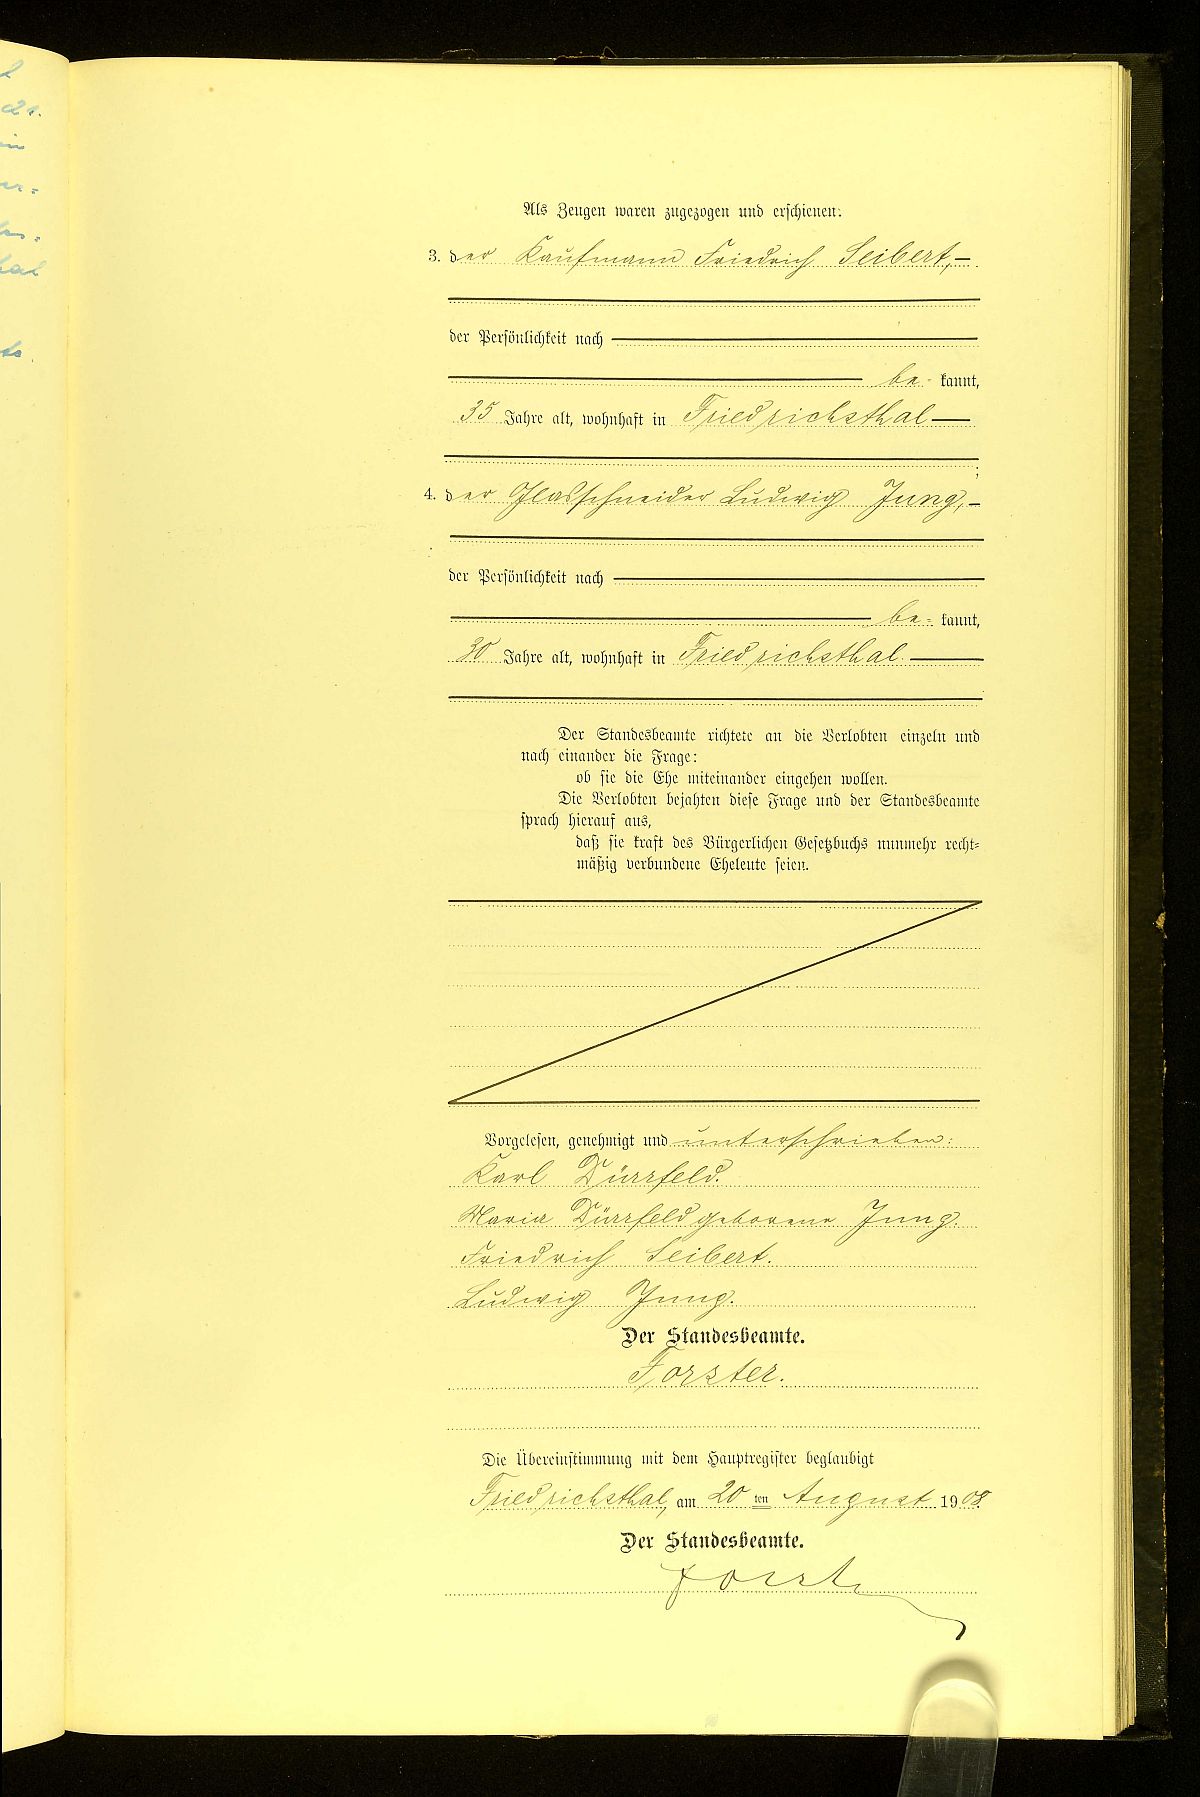 Als Zeugen waren zugezogen und erschienen:
3. der Kaufmann Friedrich Seibert,
der Persönlichkeit nach
be- kannt,
35 Jahre alt, wohnhaft in Friedrichsthal
;
4. der Glasschneider Ludwig Jung,
der Persönlichkeit nach
be- kannt,
30 Jahre alt, wohnhaft in Friedrichsthal
Der Standesbeamte richtete an die Verlobten einzeln und
nach einander die Frage:
ob sie die Ehe miteinander eingehen wollen.
Die Verlobten bejahten diese Frage und der Standesbeamte
sprach hierauf aus,
daß sie kraft des Bürgerlichen Gesetzbuchs nunmehr recht-
mäßig verbundene Eheleute seien.
Vorgelesen, genehmigt und unterschrieben:
Karl Dürrfeld.
Maria Dürrfeld geborene Jung.
Friedrich Seibert.
Ludwig Jung.
Der Standesbeamte.
Forster.
Die Übereinstimmung mit dem Hauptregister beglaubigt
Friedrichsthal, am 20 ten August 1908
Der Standesbeamte.
Forster